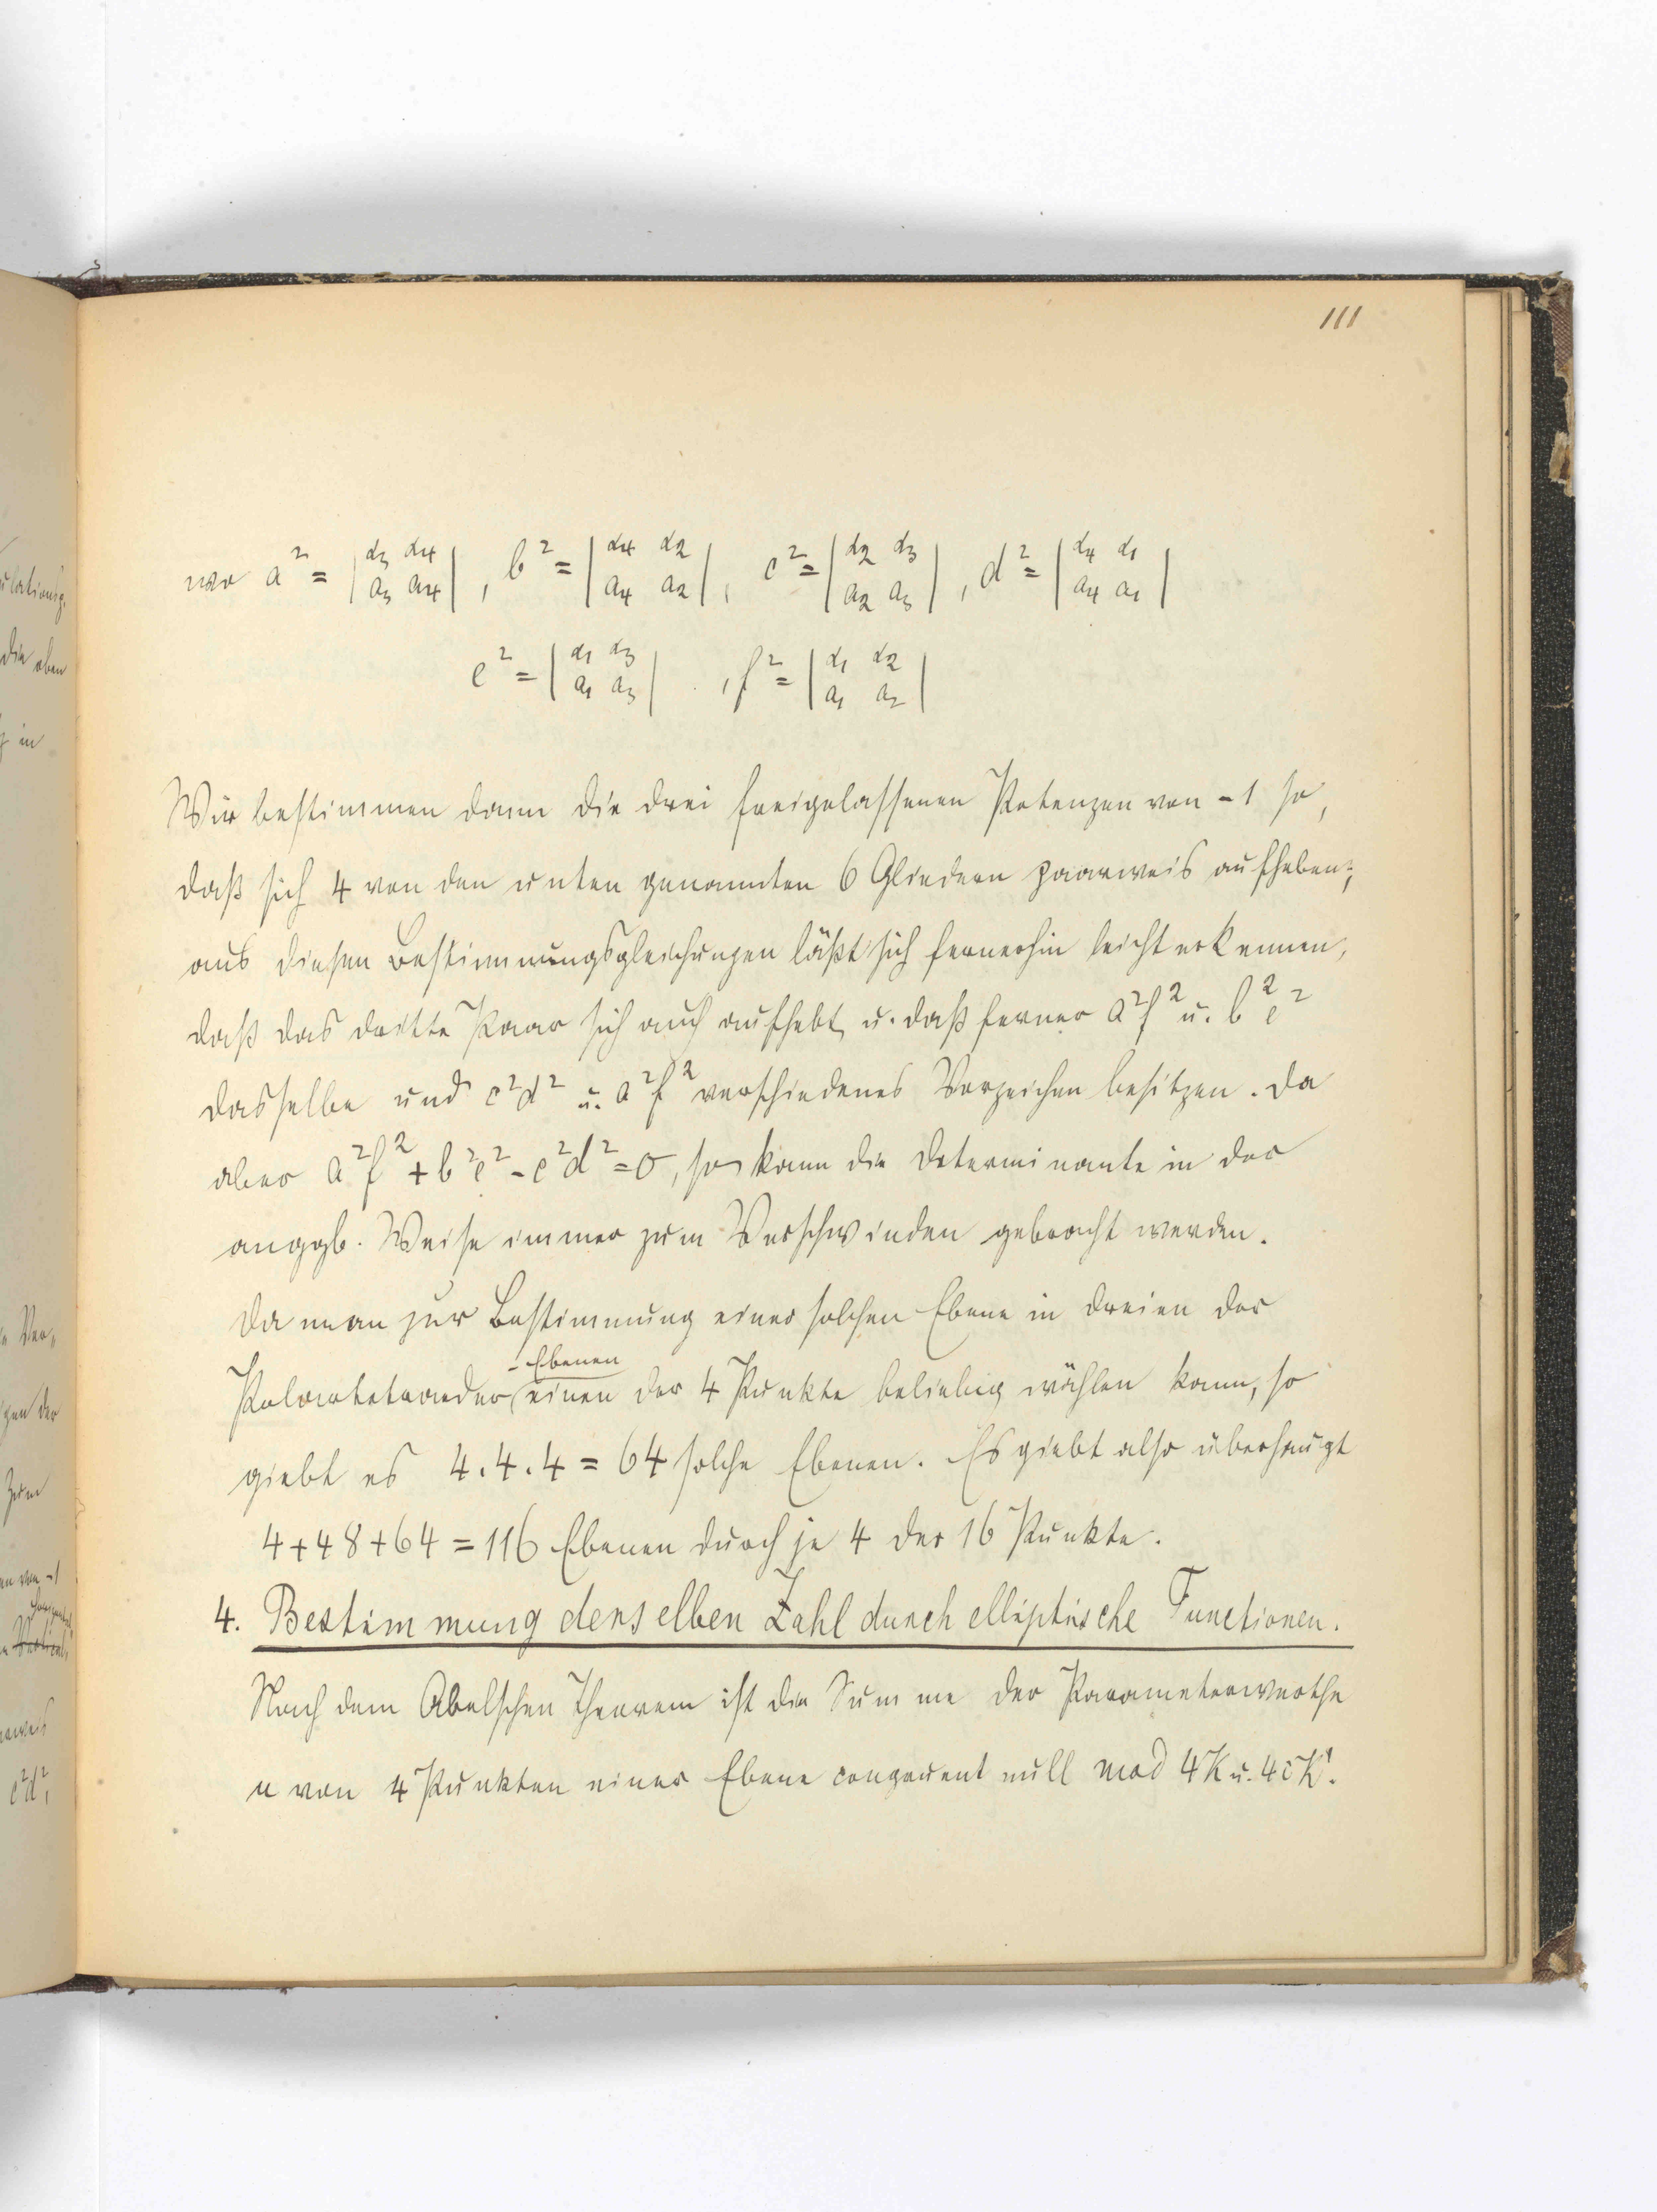 111
wo a² = | α₃ α₄ | , b² = | α₄ α₂ | , c² = | α₂ α₃ | , d² = | α₄ α₁ |
| a₃ a₄ | | a₄ a₂ | | a₂ a₃ | | a₄ a₁ |
e² = | α₁ α₃ | , f² = | α₁ α₂ |
| a₁ a₃ | | a₁ a₂ |
Wir bestimmen dann die drei freigelassenen Potenzen von -1 so,
daß sich 4 von den unten genannten 6 Gliedern paarweis aufheben;
aus diesen Bestimmungsgleichungen läßt sich fernerhin leicht erkennen,
daß das dritte Paar sich auch aufhebt, u. daß ferner a²f² u. b²e²
dasselbe und c²d² u. a²f² verschiedenes Vorzeichen besitzen. Da
aber a²f² + b²e² - c²d² = 0, so kann die Determinante in der
anggb. Weise immer zum Verschwinden gebracht werden.
Da man zur Bestimmung einer solchen Ebene in dreien der
-Ebenen
Polartetraeder einen der 4 Punkte beliebig wählen kann, so
giebt es 4.4.4 = 64 solche Ebenen. Es giebt also überhaupt
4+48+64 = 116 Ebenen durch je 4 der 16 Punkte.
4. Bestimmung derselben Zahl durch elliptische Functionen.
Nach dem Abelschen Theorem ist die Summe der Parameterwerthe
u von 4 Punkten einer Ebene congruent null mod 4K u. 4iK'.